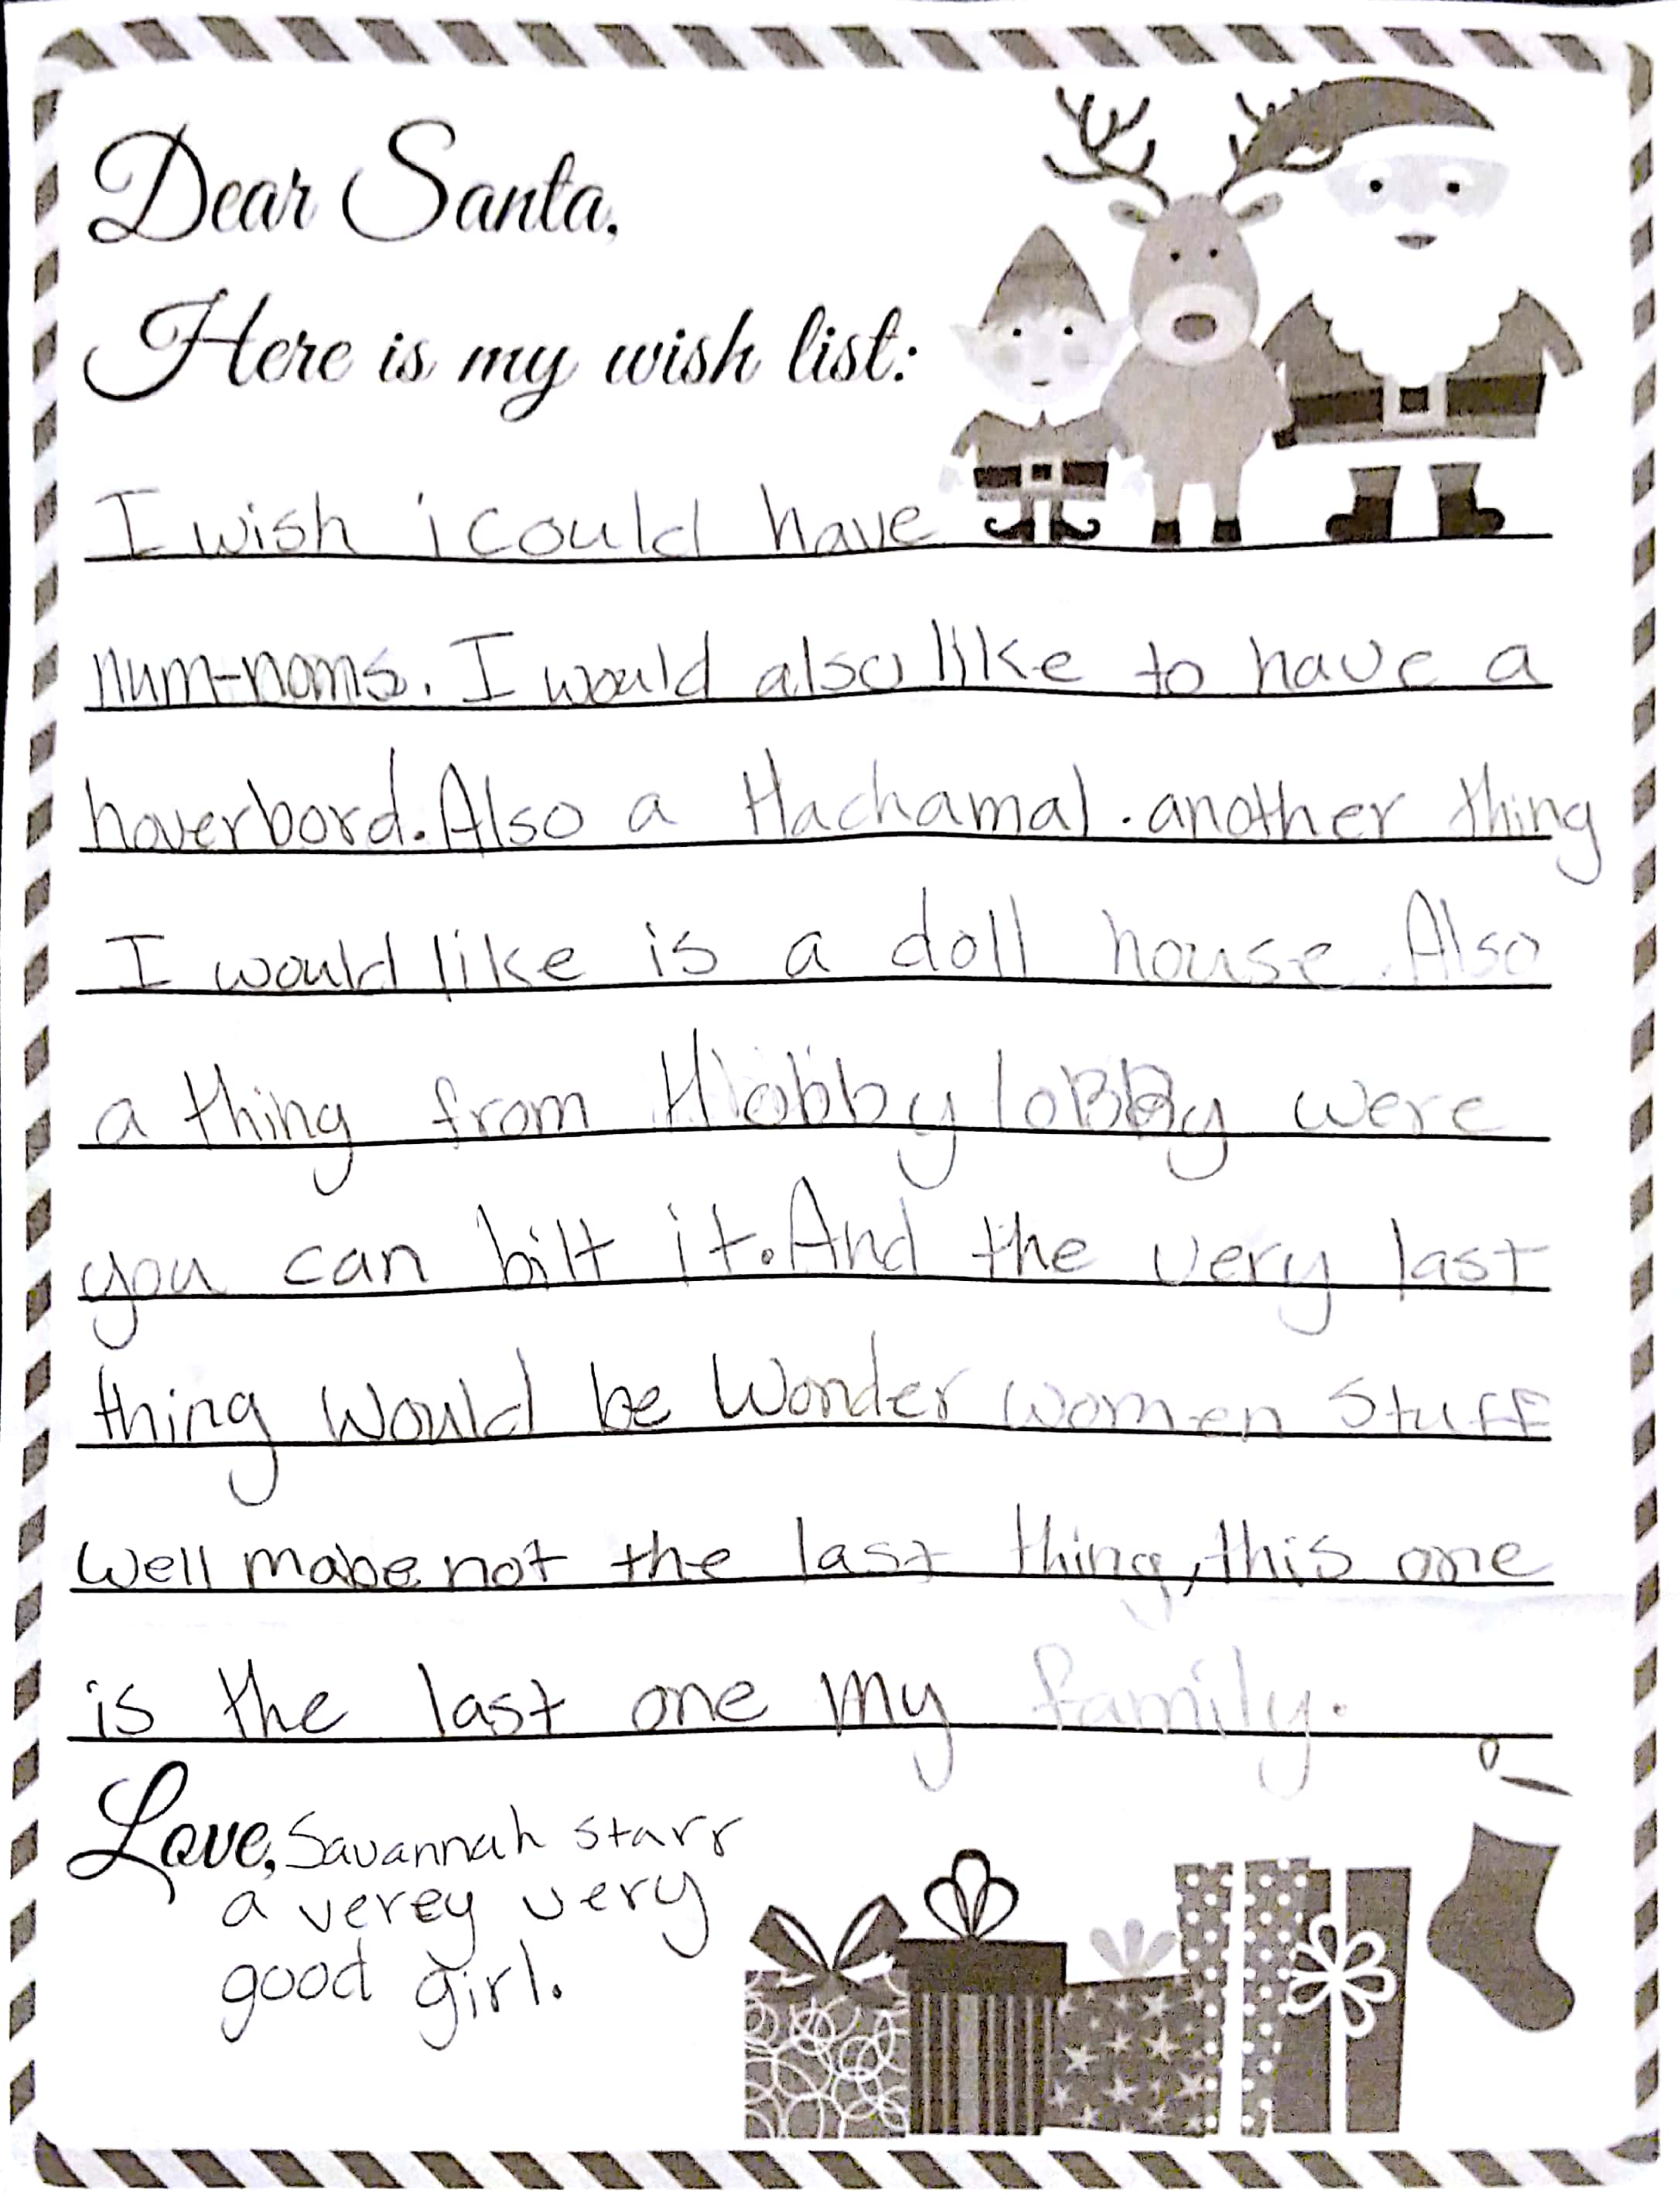 Dear Santa,
Here is my wish list:
I wish i could have
num-noms. I would also like to have a
hoverbord. Also a Hachamal. another thing
I would like is a doll house. Also
a thing from Hobby loBBy were
you can bilt it. And the very last
thing Would be Wonder women Stuff
Well mabe not the last thing, this one
is the last one my family.
Love, Savannah starr
a verey very
good girl.